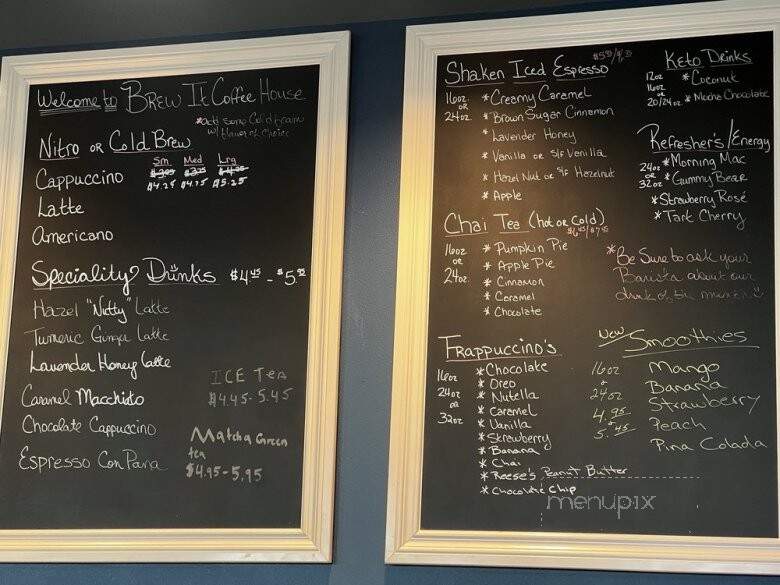 Welcome to Brew It Coffee House
*add some Cold Foam
w/ flavor of choice
Nitro or Cold Brew
Sm Med Lrg
Cappuccino
$4.25 $4.75 $5.25
Latte
Americano
Speciality Drinks $4.45 - $5.
Hazel "Nutty" Latte
Tumeric Ginger Latte
Lavender Honey Latte
Caramel Macchiato
Chocolate Cappuccino
Espresso Con Pana
ICE Tea
$4.45-5.45
Matcha Green
tea
$4.95-5.95
Shaken Iced Espresso
16oz
or
24oz
* Creamy Caramel
* Brown Sugar Cinnamon
* Lavender Honey
* Vanilla or S/F Vanilla
* Hazel Nut or S/F Hazelnut
* Apple
Chai Tea (hot or Cold)
16oz
or
24oz
* Pumpkin Pie
* Apple Pie
* Cinnamon
* Caramel
* Chocolate
Frappuccino's
16oz
24oz
or
32oz
* Chocolate
* Oreo
* Nutella
* Caramel
* Vanilla
* Strawberry
* Banana
* Chai
* Reese's Peanut Butter
* Chocolate Chip
Keto Drinks
12oz
16oz
or
20/24oz
* Coconut
* Mocha Chocolate
Refresher's/Energy
24oz
or
32oz
* Morning Mac
* Gummy Bear
* Strawberry Rosé
* Tart Cherry
* Be Sure to ask your
Barista about our
drink of the
New Smoothies
16oz
24oz
4.95
5.45
Mango
Banana
Strawberry
Peach
Pina Colada
menupix